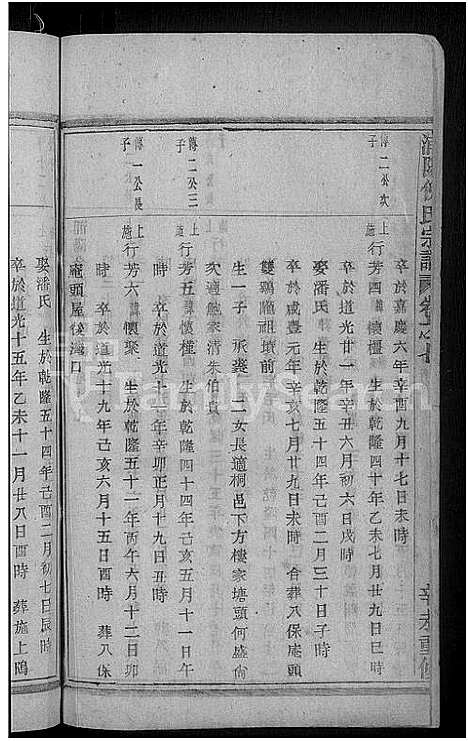 浦陽何氏宗譜卷之七
辛未重修
卒於嘉慶六年辛酉九月十七日未時
傳二公次子
上施
行芳四 懷櫃 生於乾隆四十年乙未七月廿九日巳時
卒於道光廿一年辛丑六月初六日戌時
娶潘氏 生於乾隆五十四年己酉二月三十日子時
卒於咸豐元年辛亥七月廿九日未時 合葬八保庵頭
雙鷄龍祖墳前
生一子 承 二女長適桐邑下方樓家塘頭何盛尙
次適鮑家清朱伯貴
傳二公三子
上施
行芳五 懷槿 生於乾隆四十四年己亥五月十一日午
時 卒於道光十一年辛卯正月十九日丑時
傳一公長子
上施
行芳六 懷聚 生於乾隆五十一年丙午六月十二日卯
時 卒於道光十九年己亥六月十五日酉時 葬八保
龍頭屋後灣口
娶潘氏 生於乾隆五十四年己酉二月初七日辰時
卒於道光十五年乙未十一月廿八日酉時 葬施上塢